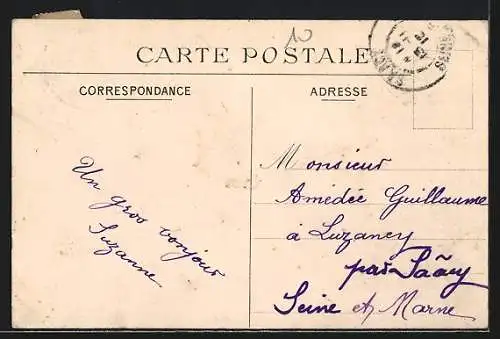 10
CARTE POSTALE
CORRESPONDANCE
ADRESSE
Un gros bonjour
Suzanne
Monsieur
Amédée Guillaume
à Luzancy
par Saâcy
Seine et Marne